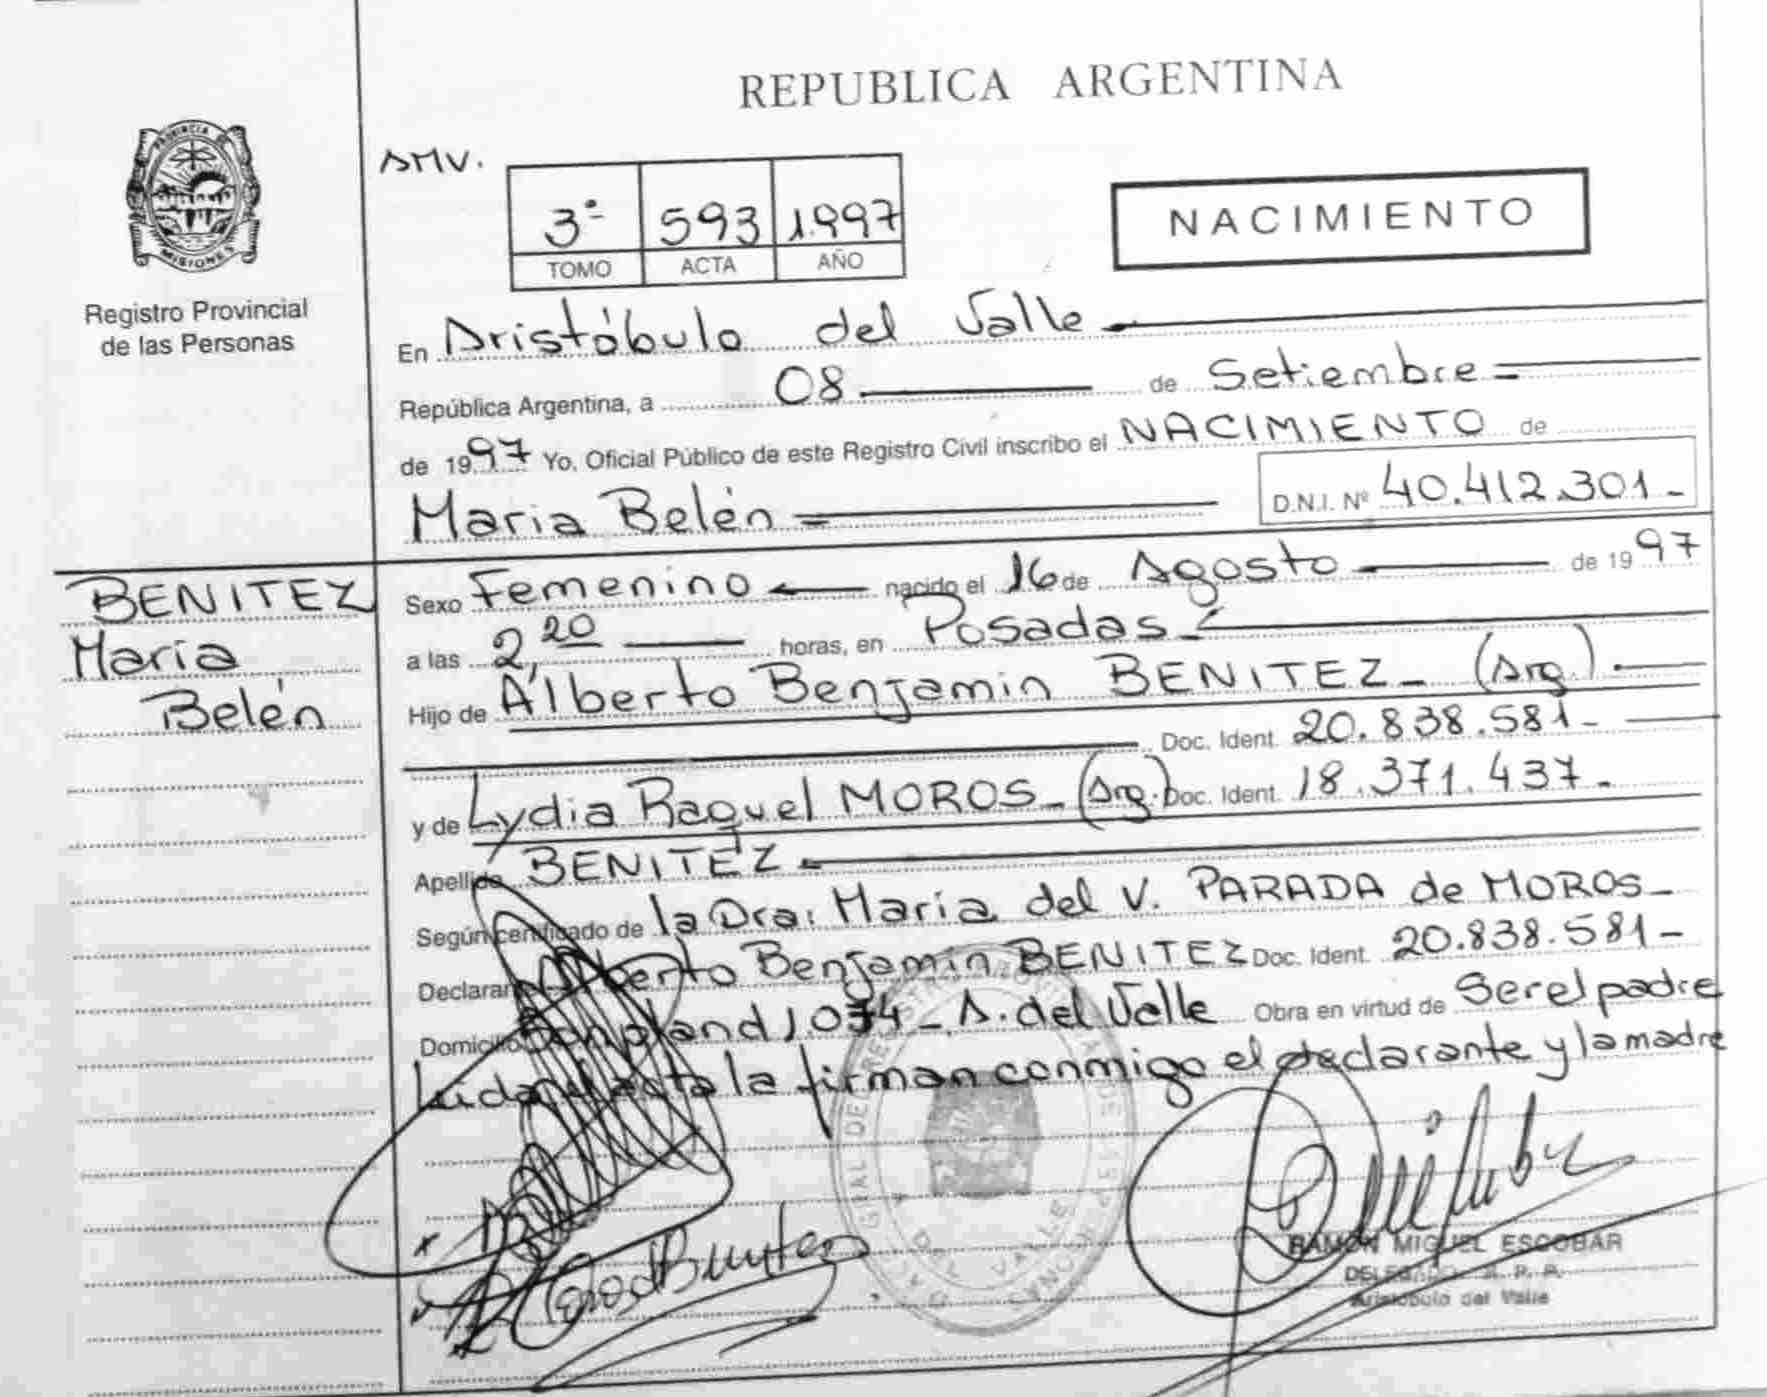 REPUBLICA ARGENTINA
PROVINCIA DE
MISIONES
Registro Provincial
de las Personas
AMV.
3º 593 1.997
TOMO ACTA AÑO
NACIMIENTO
En Aristóbulo del Valle
República Argentina, a 08 de Setiembre
de 1997 Yo, Oficial Público de este Registro Civil inscribo el NACIMIENTO de
Maria Belén D.N.I. Nº 40.412.301-
BENITEZ
Maria
Belén
Sexo Femenino nacido el 16 de Agosto de 1997
a las 2,20 horas, en Posadas
Hijo de Alberto Benjamin BENITEZ - (Arg.)
Doc. Ident. 20.838.581-
y de Lydia Raquel MOROS - (Arg.) Doc. Ident. 18.371.437-
Apellido BENITEZ
Según certificado de la Dra. Maria del V. PARADA de MOROS-
Declarante Alberto Benjamin BENITEZ Doc. Ident. 20.838.581-
Domicilio Bonpland 1.034 - A. del Valle Obra en virtud de Ser el padre
Leida el acta la firman conmigo el declarante y la madre
DEL VALLE
RAMON MIGUEL ESCOBAR
DELEGADO R. P. P.
Aristóbulo del Valle